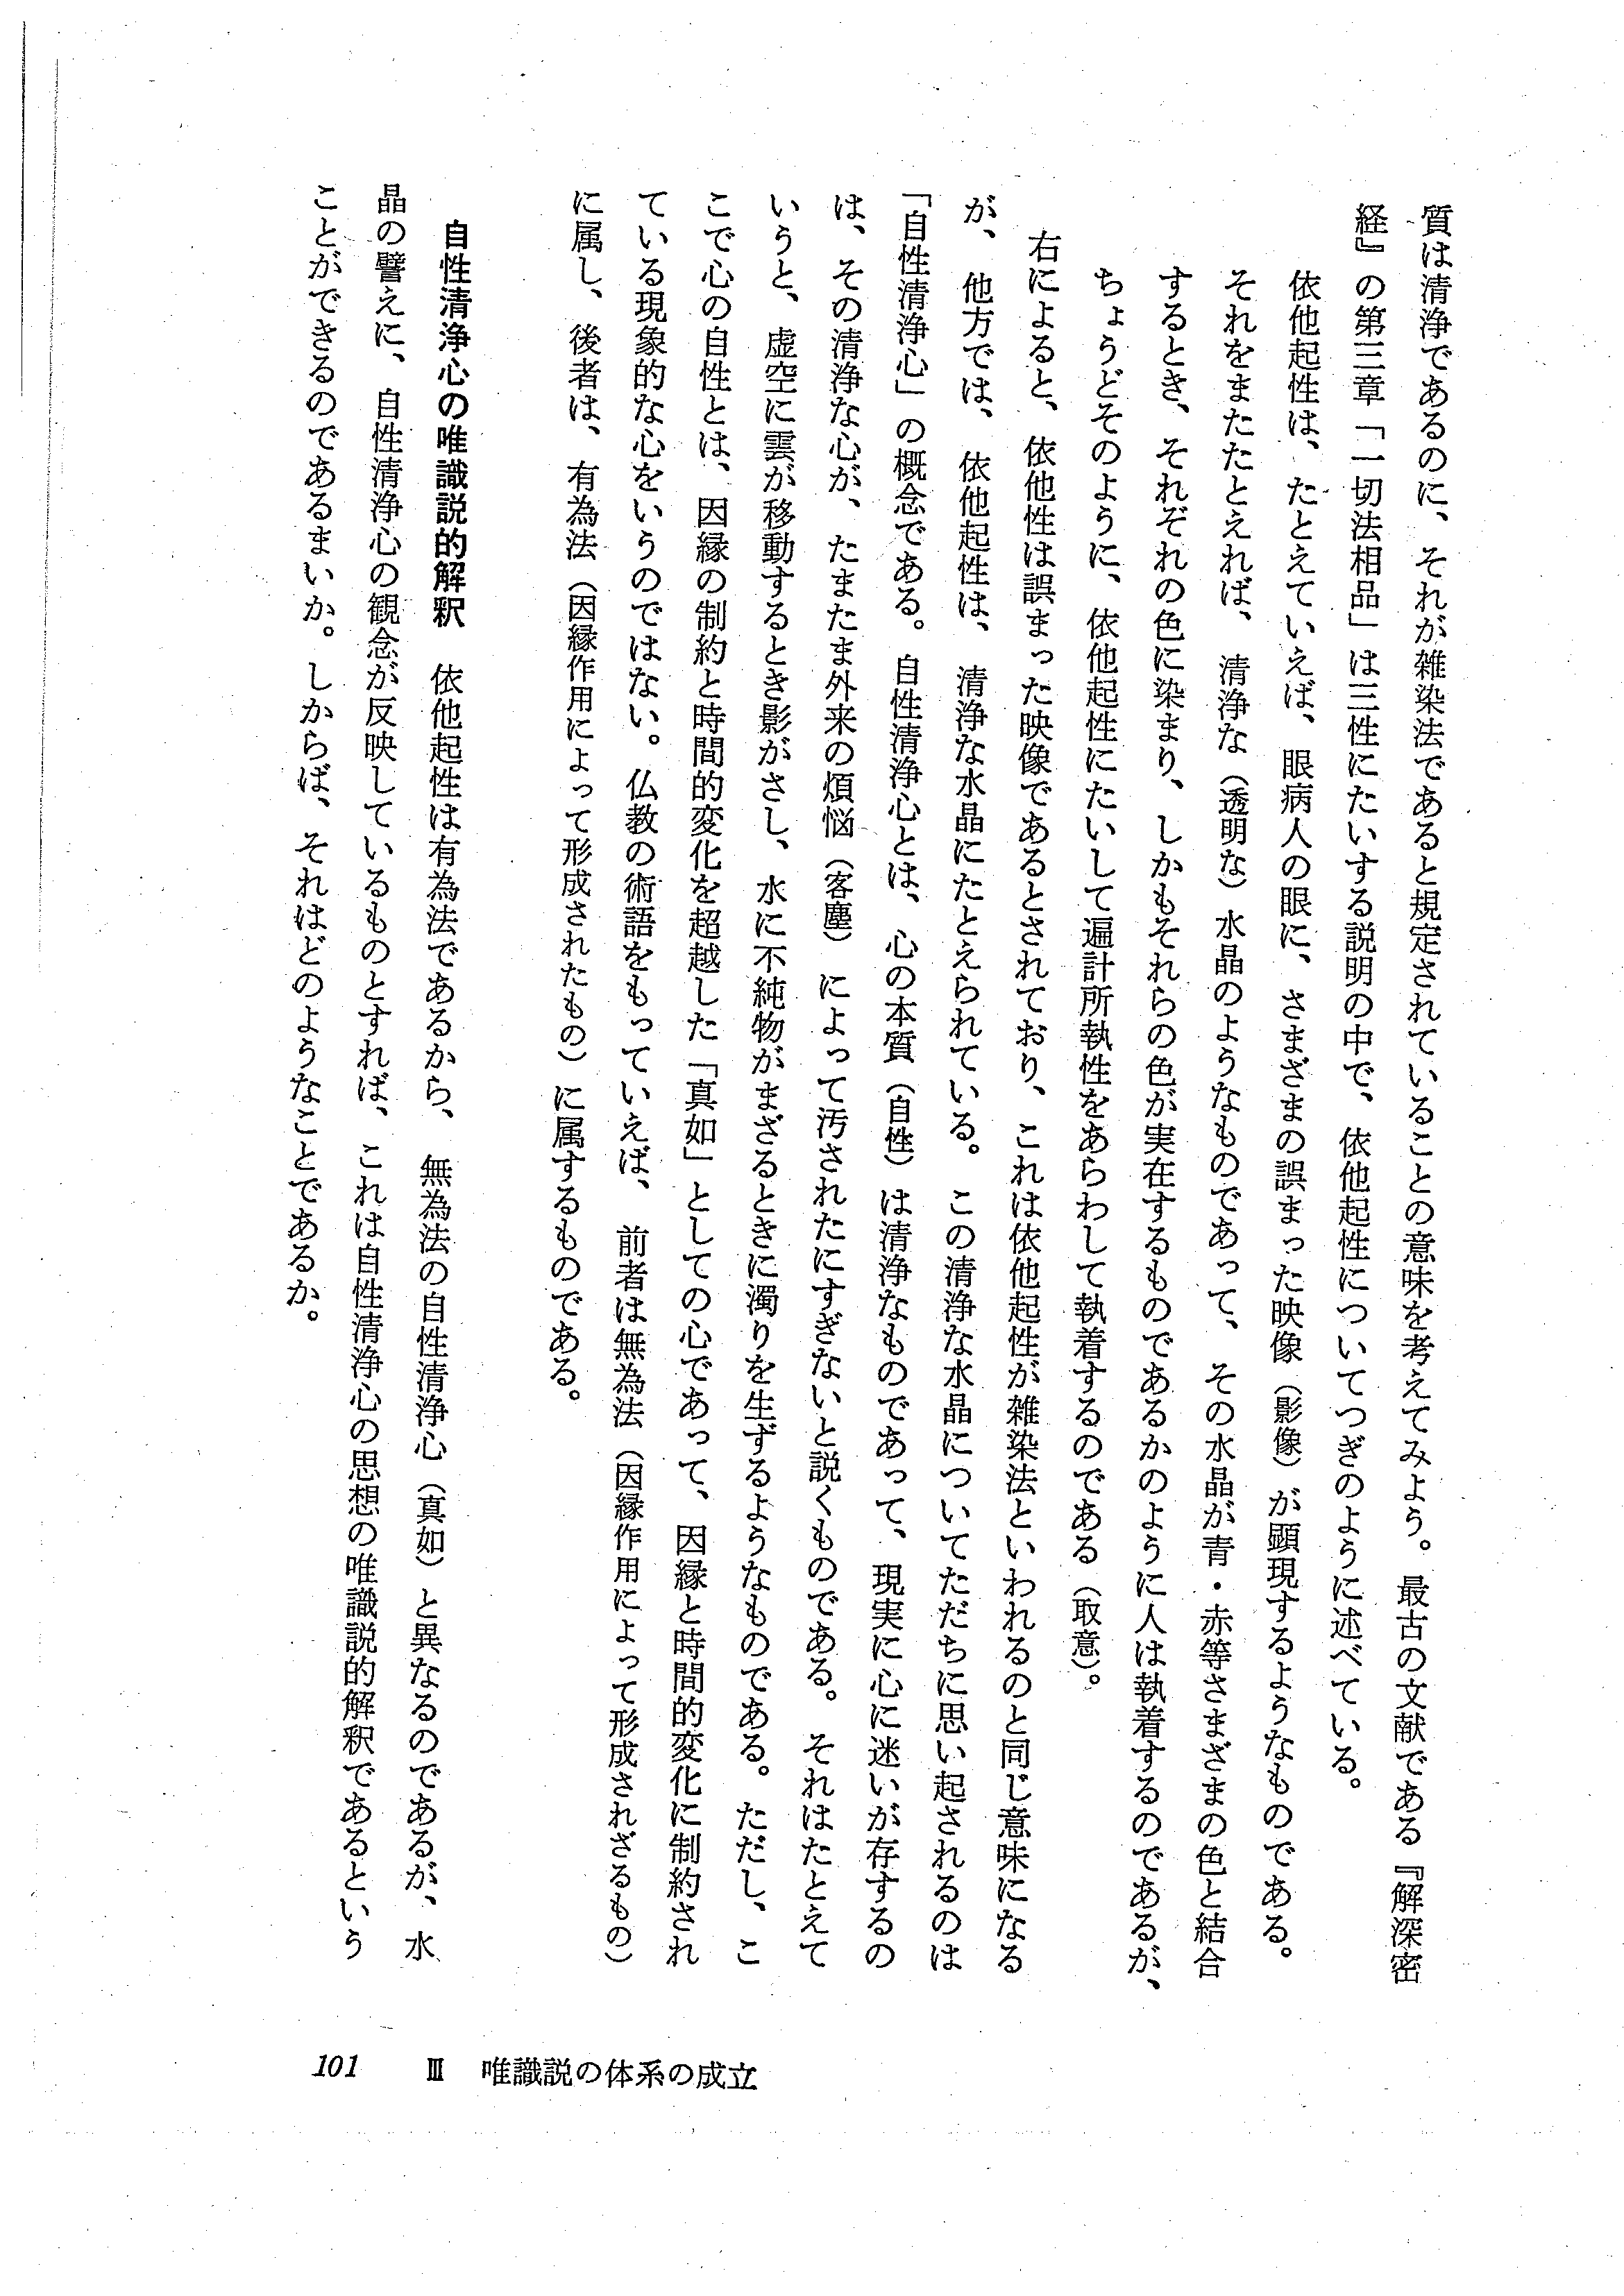 質は清浄であるのに、それが雑染法であると規定されていることの意味を考えてみよう。最古の文献である『解深密
経』の第三章「一切法相品」は三性にたいする説明の中で、依他起性についてつぎのように述べている。
依他起性は、たとえていえば、眼病人の眼に、さまざまの誤まった映像（影像）が顕現するようなものである。
それをまたたとえれば、清浄な（透明な）水晶のようなものであって、その水晶が青・赤等さまざまの色と結合
するとき、それぞれの色に染まり、しかもそれらの色が実在するものであるかのように人は執着するのであるが、
ちょうどそのように、依他起性にたいして遍計所執性をあらわして執着するのである（取意）。
右によると、依他性は誤まった映像であるとされており、これは依他起性が雑染法といわれるのと同じ意味になる
が、他方では、依他起性は、清浄な水晶にたとえられている。この清浄な水晶についてただちに思い起されるのは
「自性清浄心」の概念である。自性清浄心とは、心の本質（自性）は清浄なものであって、現実に心に迷いが存するの
は、その清浄な心が、たまたま外来の煩悩（客塵）によって汚されたにすぎないと説くものである。それはたとえて
いうと、虚空に雲が移動するとき影がさし、水に不純物がまざるときに濁りを生ずるようなものである。ただし、こ
こで心の自性とは、因縁の制約と時間的変化を超越した「真如」としての心であって、因縁と時間的変化に制約され
ている現象的な心をいうのではない。仏教の術語をもっていえば、前者は無為法（因縁作用によって形成されざるもの）
に属し、後者は、有為法（因縁作用によって形成されたもの）に属するものである。
自性清浄心の唯識説的解釈　依他起性は有為法であるから、無為法の自性清浄心（真如）と異なるのであるが、水
晶の譬えに、自性清浄心の観念が反映しているものとすれば、これは自性清浄心の思想の唯識説的解釈であるという
ことができるのであるまいか。しからば、それはどのようなことであるか。
101　Ⅲ　唯識説の体系の成立